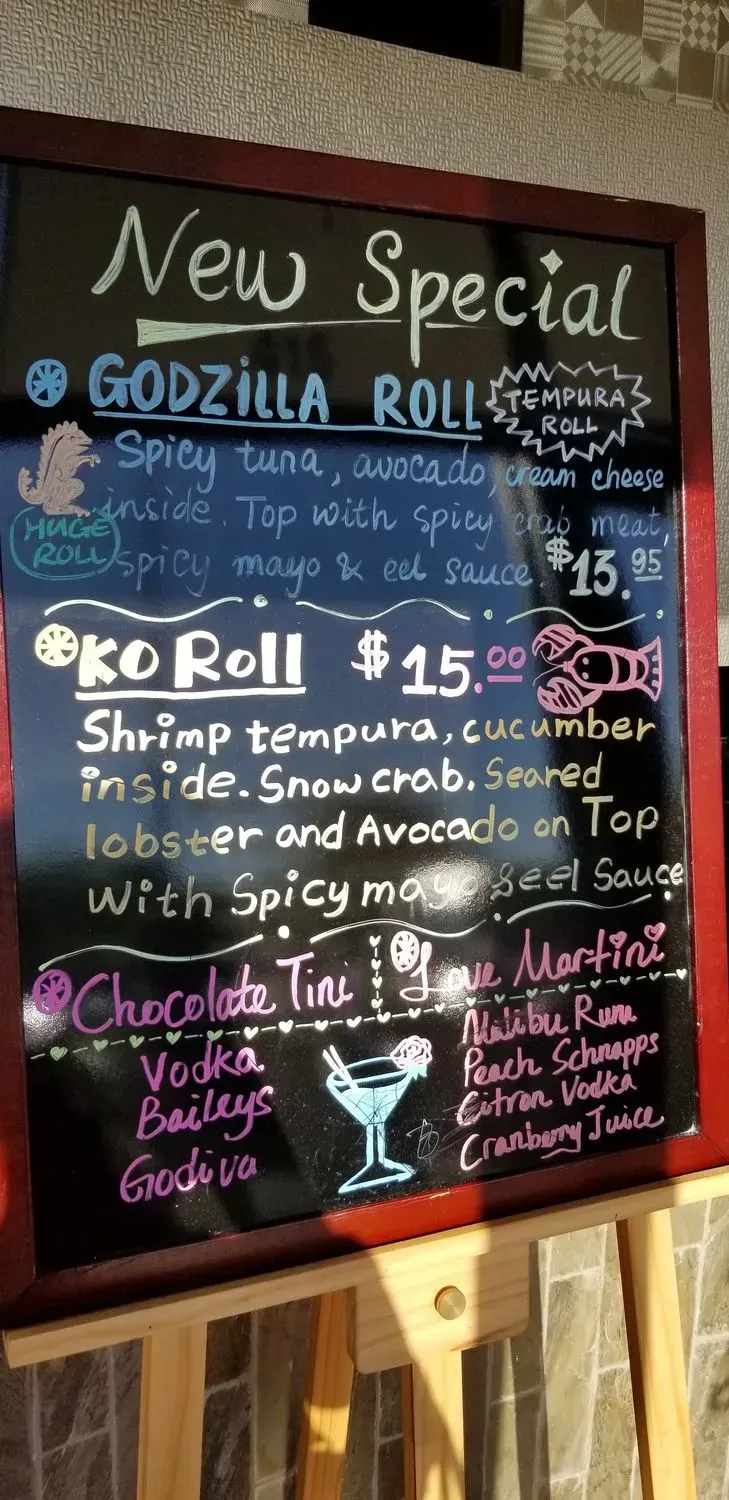 New Special
GODZiLLA ROLL
TEMPURA
ROLL
Spicy tuna, avocado, cream cheese
inside. Top with spicy crab meat,
HUGE
ROLL
spicy mayo & eel sauce. $13.95
KO Roll $15.00
Shrimp tempura, cucumber
inside. Snow crab. Seared
lobster and Avocado on Top
With Spicy mayo & eel Sauce
Chocolate Tini
Vodka
Baileys
Godiva
Love Martini
Malibu Rum
Peach Schnapps
Citron Vodka
Cranberry Juice